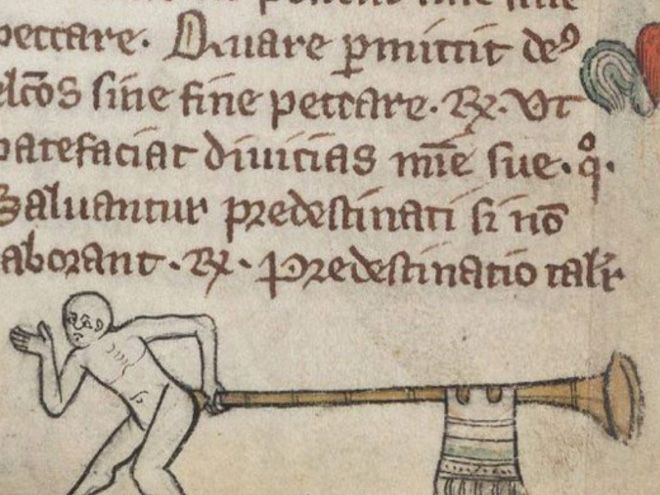 peccare. Quare ꝑmittit deꝰ
elc̄os sine fine peccare. ℞. Vt
patefaciat diuicias mīe sue. qͦ.
Saluantur predestinati si nō
laborant. ℞. Predestinatio tal'r